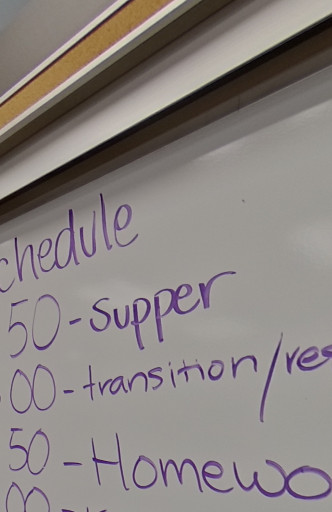 chedule
50-Supper
00-transition/res
50-Homewo
00-